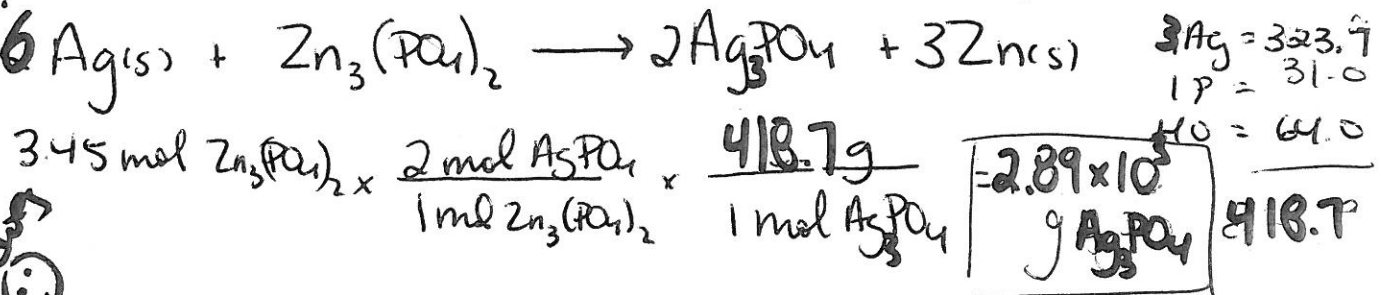 6 Ag(s) + Zn₃(PO₄)₂ ⟶ 2Ag₃PO₄ + 3Zn(s)
3Ag = 323.7
1P = 31.0
4O = 64.0
418.7
3.45 mol Zn₃(PO₄)₂ × 2 mol AgPO₄ / 1 mol Zn₃(PO₄)₂ × 418.7g / 1 mol Ag₃PO₄ = 2.89×10³ g Ag₃PO₄